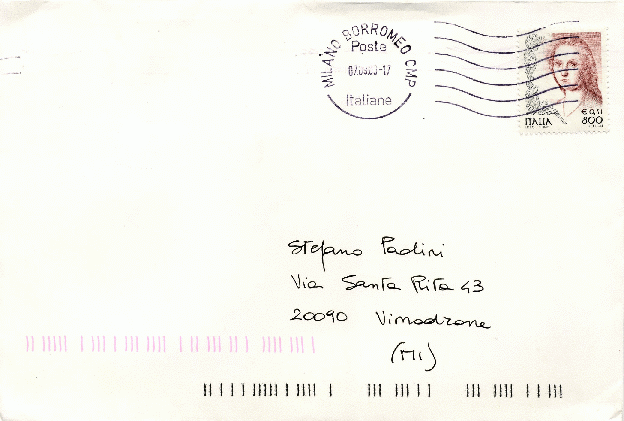 MILANO BORROMEO CMP
Poste
Italiane
ITALIA
€ 0,41
800
Stefano Paolini
Via Santa Rita 43
20090 Vimodrone
(MI)